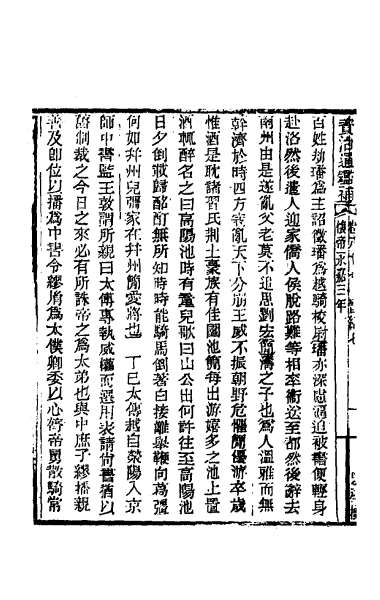 資治通鑑補
懷帝永嘉三年
百姓劫璠爲主詔徵璠爲越騎校尉璠亦深慮逼迫被書便輕身
赴洛然後遣人迎家僑人侯脫路難等相率衞送至都然後辭去
南州由是遂亂父老莫不追思劉宏簡濤之子也爲人溫雅而無
幹濟於時四方寇亂天下分崩王威不振朝野危懼簡優游卒歲
惟酒是耽諸習氏荆土豪族有佳園池簡每出游嬉多之池上置
酒輒醉名之曰高陽池時有童兒歌曰山公出何許往至高陽池
日夕倒載歸酩酊無所知時時能騎馬倒著白接離舉鞭向葛彊
何如幷州兒彊家在幷州簡愛將也 丁巳太傅越自滎陽入京
師中書監王敦謂所親曰太傅專執威權而選用表請尚書猶以
舊制裁之今日之來必有所誅帝之爲太弟也與中庶子繆播親
善及卽位以播爲中書令繆胤爲太僕卿委以心膂帝舅散騎常